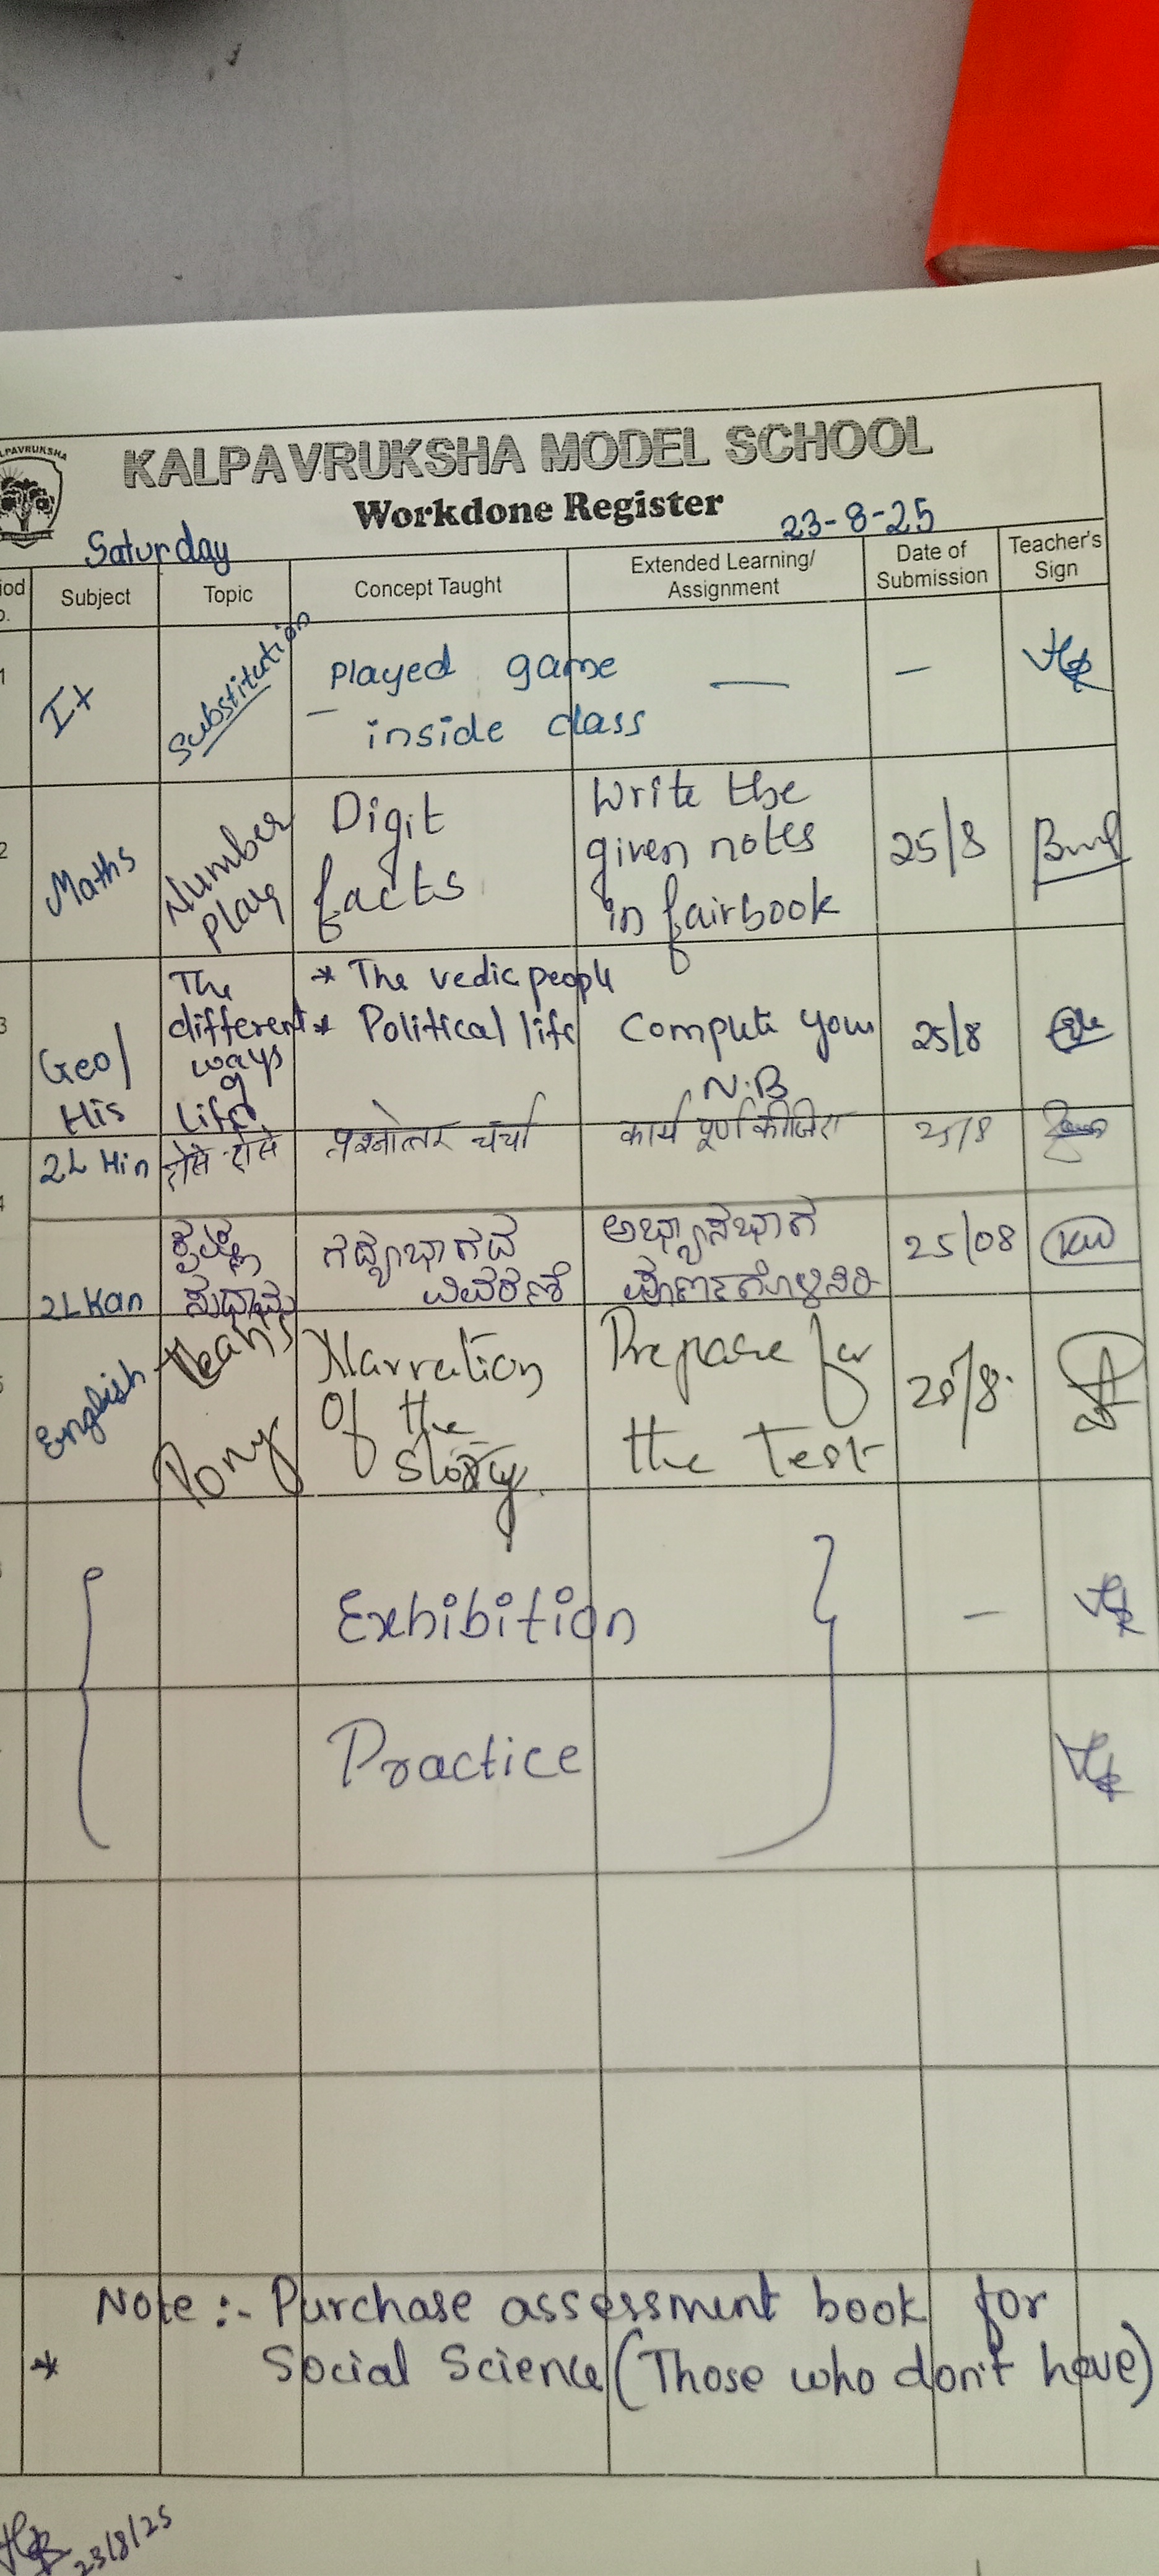 LPAVRUKSHA
KALPAVRUKSHA MODEL SCHOOL
Workdone Register
Saturday
23-8-25
iod
o.
Subject
Topic
Concept Taught
Extended Learning/
Assignment
Date of
Submission
Teacher's
Sign
1
It
Substitution
Played game
inside class
—
—
2
Maths
Number
play
Digit
facts
Write the
given notes
in fairbook
25/8
3
Geo/
His
The
different
ways
of
life
* The vedic people
* Political life
Compute your
N.B
25/8
2L Hin
प्रश्नोत्तर चर्चा
कार्य पूर्ण कीजिए
25/8
4
2L Kan
ಕೃಷ್ಣ
ಸುಧಾಮ
ಗದ್ಯಭಾಗದ
ವಿವರಣೆ
ಅಭ್ಯಾಸಭಾಗ
ಪೂರ್ಣಗೊಳಿಸಿರಿ
25/08
English
Pony
Narration
of the
story.
Prepare for
the Test
25/8.
Exhibition
—
Practice
Note :- Purchase assessment book for
* Social Science (Those who don't have)
23/8/25